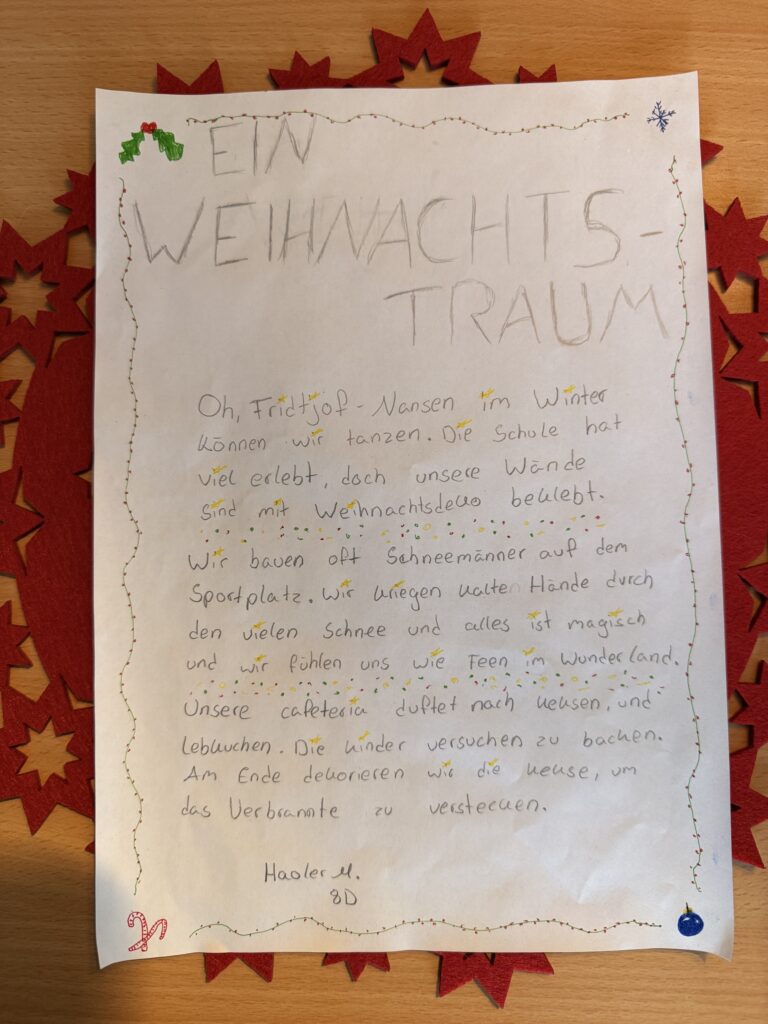 EIN
WEIHNACHTS-
TRAUM
Oh, Fridtjof-Nansen im Winter
können wir tanzen. Die Schule hat
viel erlebt, doch unsere Wände
sind mit Weihnachtsdeko beklebt.
Wir bauen oft Schneemänner auf dem
Sportplatz. Wir kriegen kalten Hände durch
den vielen Schnee und alles ist magisch
und wir fühlen uns wie Feen im Wunderland.
Unsere cafeteria duftet nach keksen, und
lebkuchen. Die kinder versuchen zu backen.
Am Ende dekorieren wir die kekse, um
das Verbrannte zu verstecken.
M.
8D